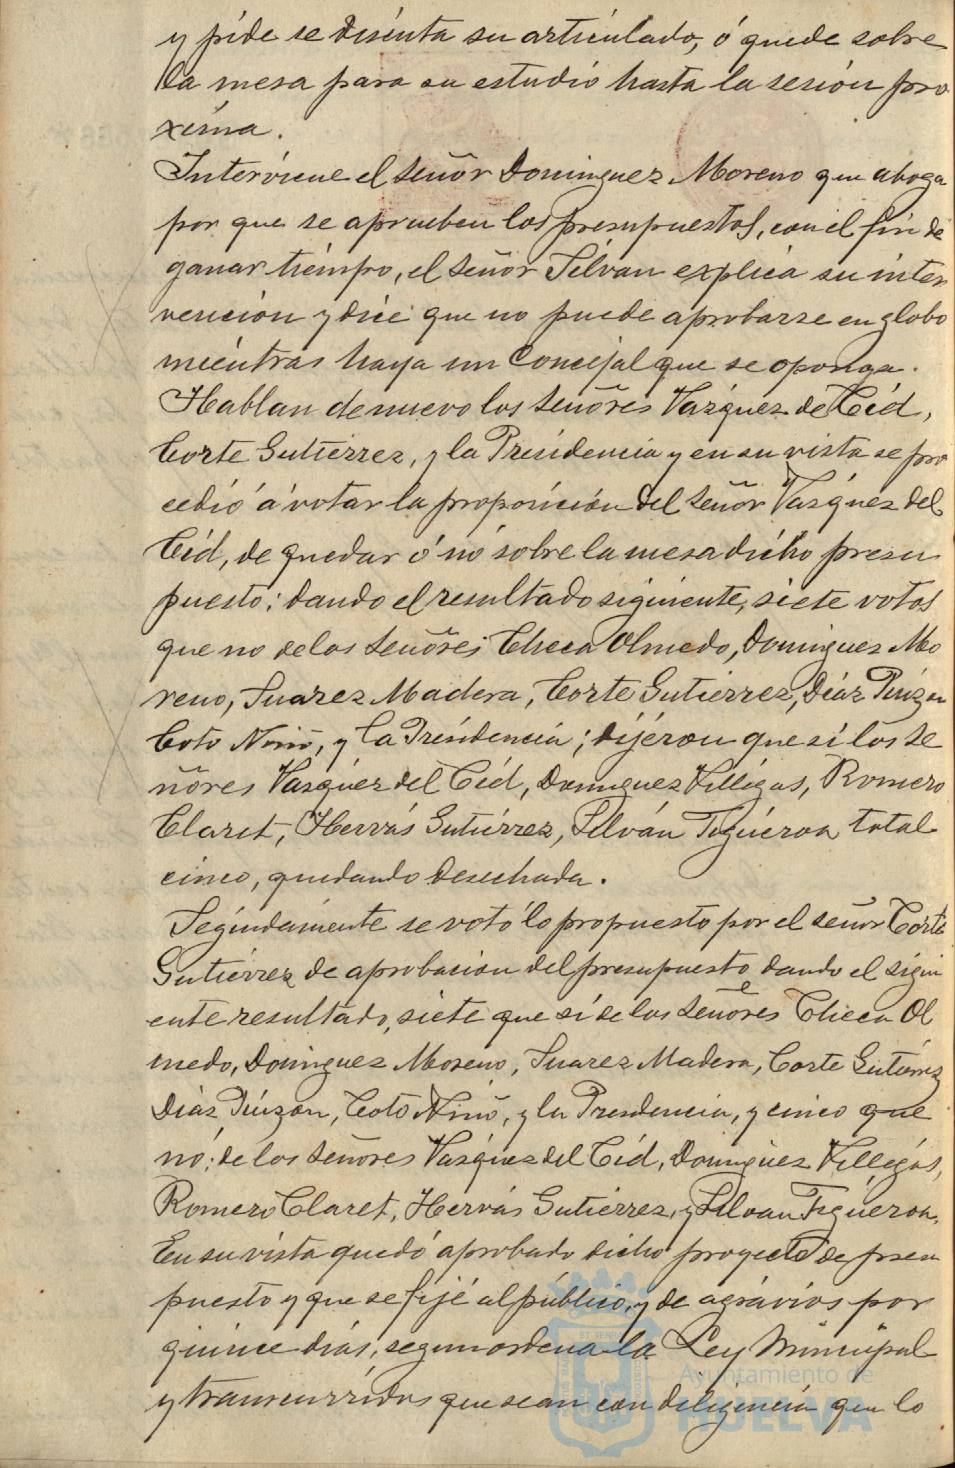 y pide se discuta su articulado, ó quede sobre
la mesa para su estudio hasta la sesión pro
xima.
Interviene el señor Dominguez Moreno que aboga
por que se aprueben los presupuestos, con el fin de
ganar tiempo, el señor Silvan explica su inter
vención y dice que no puede aprobarse en globo
mientras haya un Concejal que se oponga.
Hablan de nuevo los señores Vázquez de Cid,
Corte Gutiérrez, y la Presidencia y en su vista se pro
cedió á votar la proposición del señor Vázquez del
Cid, de quedar ó nó sobre la mesa dicho presu
puesto; dando el resultado siguiente, siete votos
que no de los señores Checa Olmedo, Dominguez Mo
reno, Suarez Madera, Corte Gutiérrez, Diáz Pinzon
Coto Niño, y la Presidencia; dijéron que si los se
ñores Vázquez del Cid, Dominguez Villégas, Romero
Claret, Hervás Gutiérrez, Silván Figúeroa total
cinco, quedando desechada.
Segúndamente se votó lo propuesto por el señor Corte
Gutiérrez de aprobacion del presupuesto dando el sigui
ente resultado, siete que sí de los señores Checa Ol
medo, Dominguez Moreno, Suarez Madera, Corte Gutiérrez
Diáz Pinzon, Coto Niño, y la Presidencia, y cinco que
nó; de los señores Vázquez del Cid, Dominguez Villegas,
Romero Claret, Hervás Gutiérrez, y Silvan Figúeroa.
En su vista quedó aprobado dicho proyecto de presu
puesto y que se fijé al público, y de agrávios por
quince diás, segun ordena la Ley Municipal
y transcurridos que sean con diligencia que lo
Ayuntamiento de
HUELVA